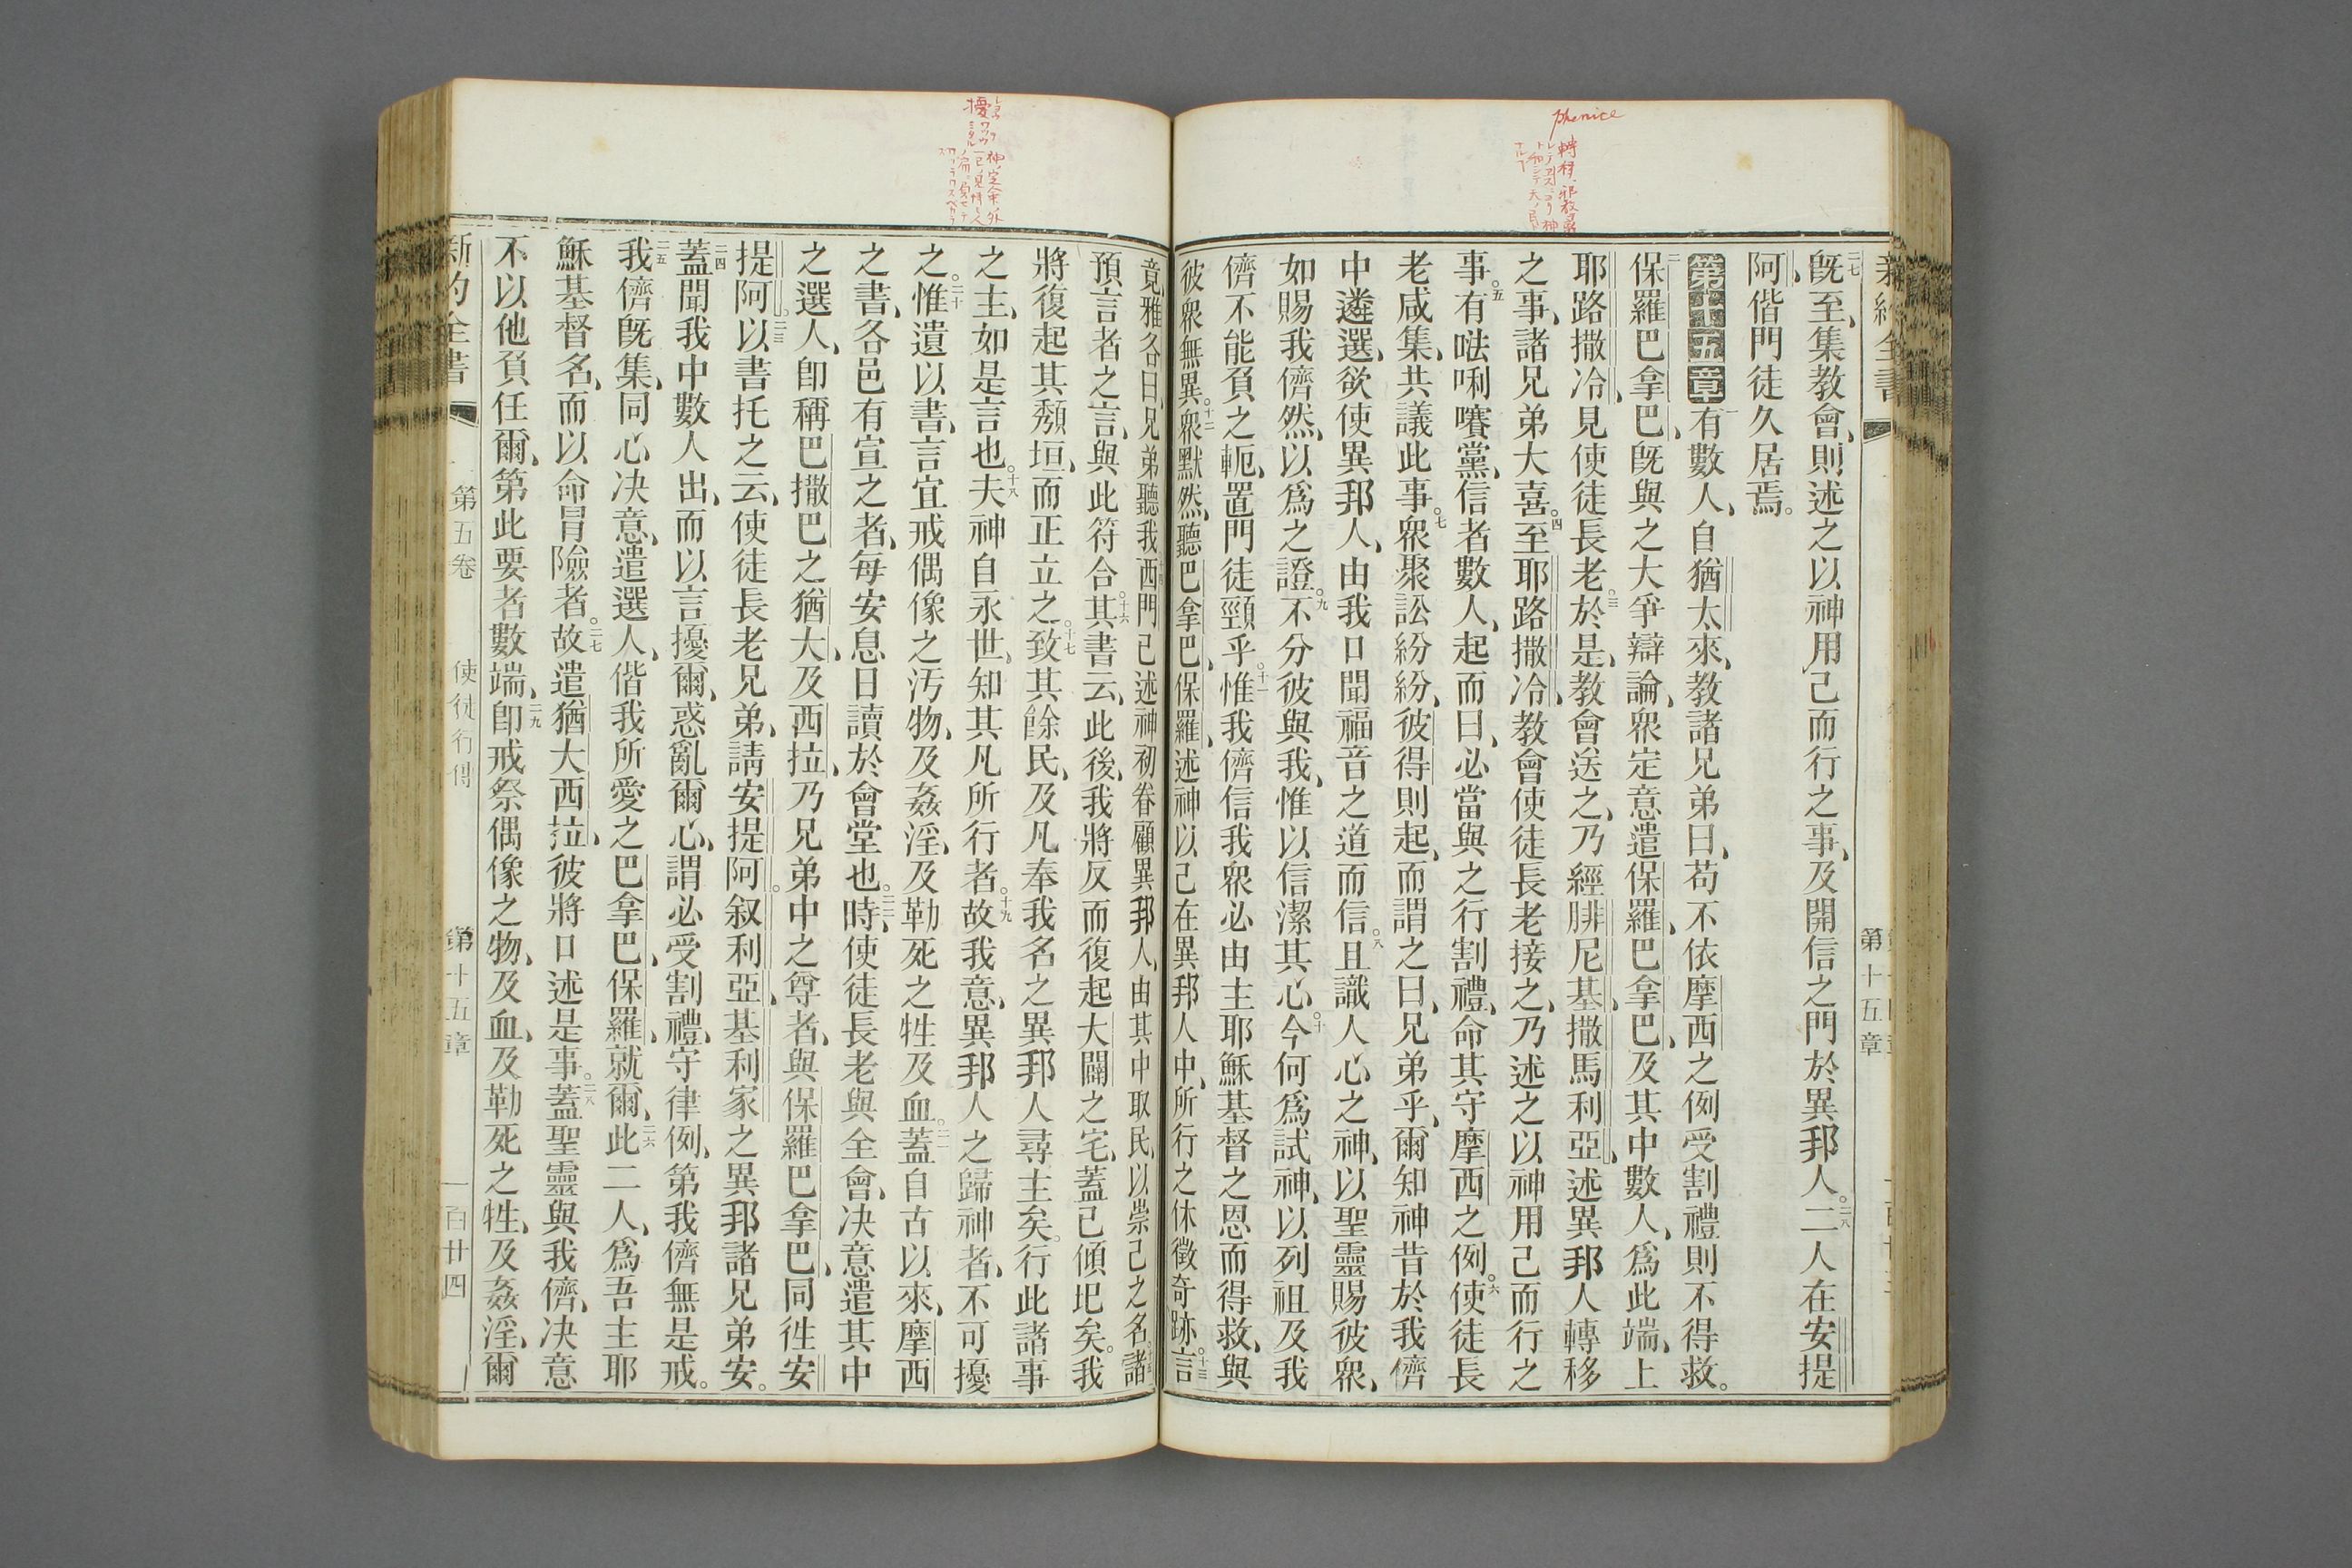 phenice
既至、集教會、則述之以神用己而行之事、及開信之門於異邦人。二人在安提
阿、偕門徒久居焉。
第十五章 有數人、自猶太來、教諸兄弟曰、苟不依摩西之例受割禮則不得救。
保羅巴拿巴、既與之大爭辯論、眾定意遣保羅、巴拿巴、及其中數人、爲此端、上
耶路撒冷、見使徒長老。於是、教會送之、乃經腓尼基、撒馬利亞、述異邦人轉移
之事、諸兄弟大喜。至耶路撒冷、教會使徒長老接之、乃述之以神用己而行之
事。有𠵽唎㘔黨、信者數人、起而曰、必當與之行割禮、命其守摩西之例。使徒長
老咸集、共議此事。眾聚訟紛紛、彼得則起、而謂之曰、兄弟乎、爾知神昔於我儕
中遴選、欲使異邦人、由我口聞福音之道而信。且識人心之神、以聖靈賜彼眾、
如賜我儕然、以爲之證。不分彼與我、惟以信潔其心。今何爲試神、以列祖及我
儕不能負之軛、置門徒頸乎。惟我儕信我眾必由主耶穌基督之恩而得救、與
彼眾無異。眾默然、聽巴拿巴、保羅、述神以己在異邦人中、所行之休徵奇跡。言
竟、雅各曰、兄弟聽我、西門已述神初眷顧異邦人、由其中取民、以崇己之名。諸
預言者之言、與此符合。其書云、此後、我將反而復起大闢之宅、蓋已傾圮矣。我
將復起其頹垣、而正立之。致其餘民、及凡奉我名之異邦人尋主矣。行此諸事
之主、如是言也。夫神自永世、知其凡所行者。故我意、異邦人之歸神者、不可擾
之。惟遺以書、言宜戒偶像之汚物、及姦淫、及勒死之牲及血。蓋自古以來、摩西
之書、各邑有宣之者、每安息日讀於會堂也。時、使徒長老與全會、決意遣其中
之選人、卽稱巴撒巴之猶大、及西拉、乃兄弟中之尊者、與保羅巴拿巴、同徃安
提阿。以書托之云、使徒長老兄弟、請安提阿。叙利亞、基利家之異邦諸兄弟安。
蓋聞我中數人出、而以言擾爾、惑亂爾心、謂必受割禮、守律例、第我儕無是戒。
我儕既集、同心決意、遣選人、偕我所愛之巴拿巴、保羅、就爾、此二人、爲吾主耶
穌基督名、而以命冒險者。故遣猶大西拉、彼將口述是事。蓋聖靈與我儕、決意
不以他負任爾、第此要者數端、卽戒祭偶像之物、及血、及勒死之牲、及姦淫、爾
新約全書 第五卷 使徒行傳 第十五章 一百廿四
第十五章